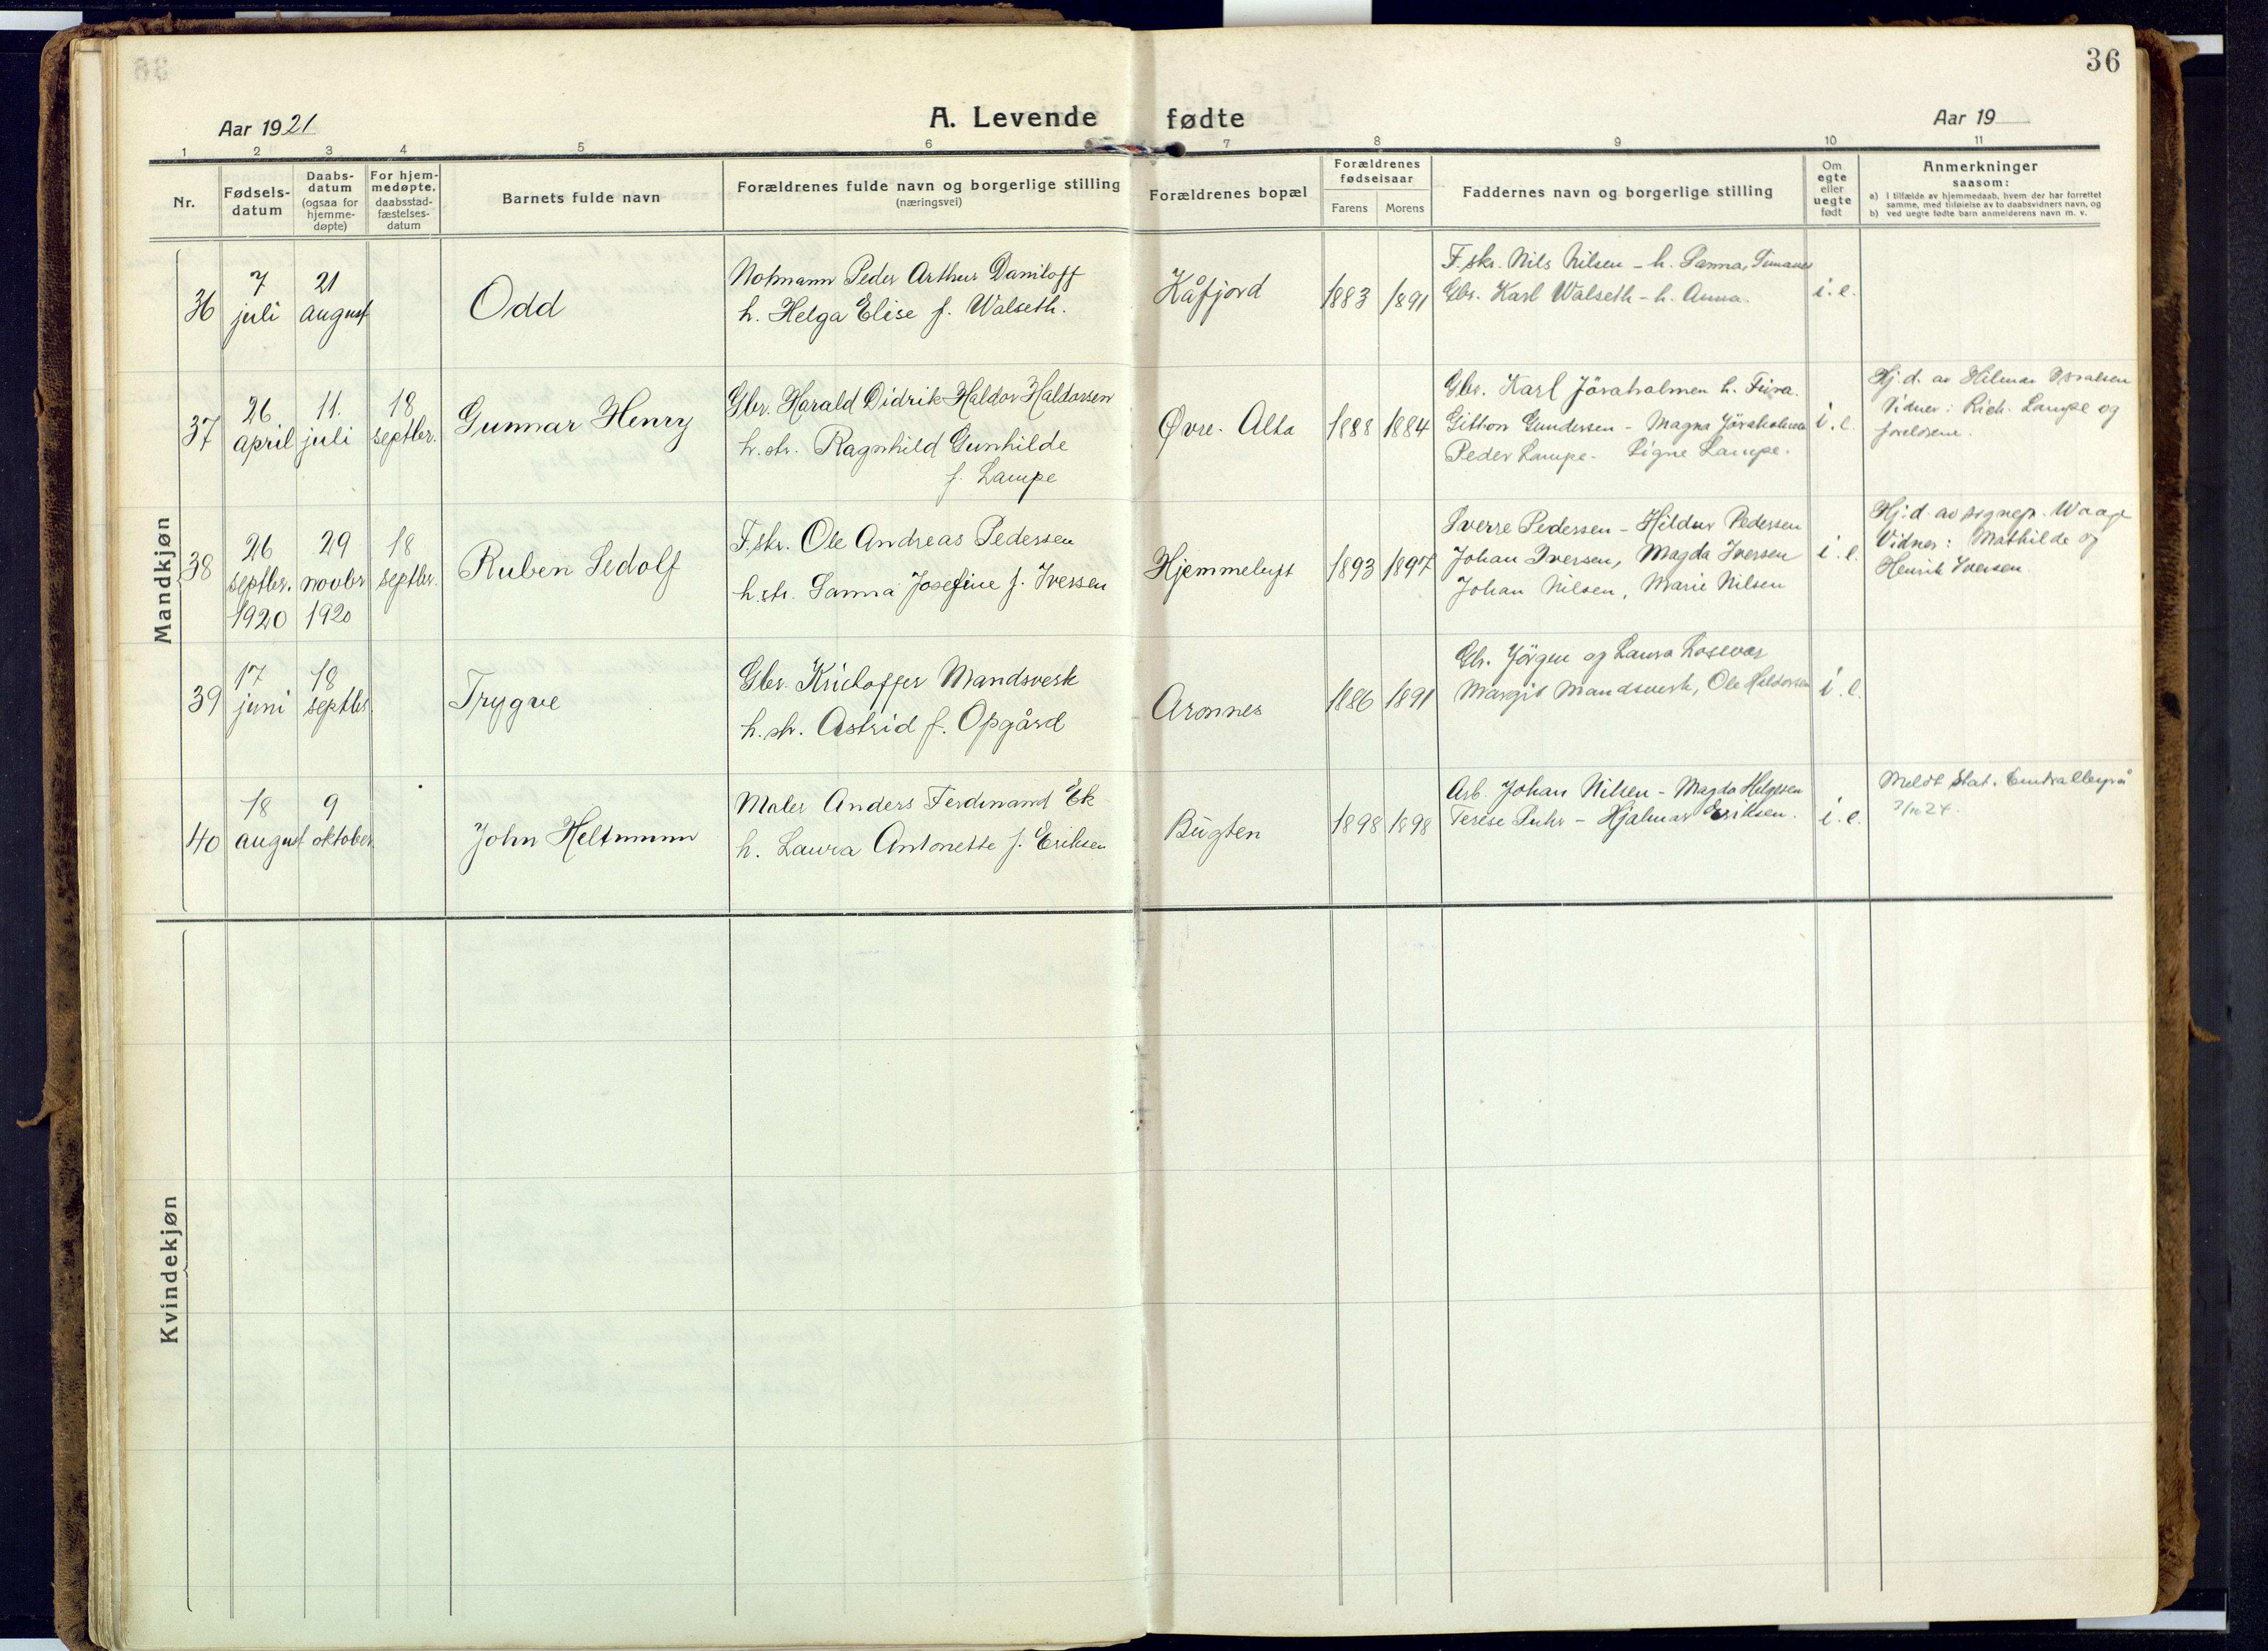 36
Aar 1921
A. Levende fødte
Aar 19
1 2 3 4 5 6 7 8 9 10 11
Nr.
Fødsels-
datum
Daabs-
datum
(ogsaa for
hjemme-
døpte)
For hjem-
medøpte,
daabsstad-
fæstelses-
datum
Barnets fulde navn
Forældrenes fulde navn og borgerlige stilling
(næringsvei)
Forældrenes bopæl
Forældrenes
fødselsaar
Farens Morens
Faddernes navn og borgerlige stilling
Om
egte
eller
uegte
født
Anmerkninger
saasom:
a) i tilfælde av hjemmedaab, hvem der har forrettet
samme, med tilføielse av to daabsvidners navn, og
b) ved uegte fødte barn anmelderens navn m. v.
Mandkjøn
36
7
juli
21
august
Odd
Notmann Peder Arthur Daniloff
h. Helga Elise f. Walseth.
Kåfjord
1883 1891
F.skr. Nils Nilsen – h. Sanna,
Gbr. Karl Walseth – h. Anna.
i. e.
37
26
april
11.
juli
18
septbr.
Gunnar Henry
Gbr. Harald Didrik Haldor Haldorsen
h. str. Ragnhild Gunhilde
f. Lampe
Øvre-Alta
1888 1884
Gbr. Karl Jöraholmen h.
Gundersen – Magna Jöraholmen
Peder Lampe – Signe Lampe.
i. e.
Hj. d. av Hilmar
Vidner: Rich. Lampe og
foreldrene.
38
26
septbr.
1920
29
novbr
1920
18
septbr.
Ruben Sedolf
F.skr. Ole Andreas Pedersen
h. str. Sanna Josefine f. Iversen
Hjemmeluft
1893 1897
Sverre Pedersen – Hildur Pedersen
Johan Iversen, Magda Iversen
Johan Nilsen, Marie Nilsen
i. e.
Hj. d. av sognepr. Waage
Vidner: Mathilde og
Henrik Iversen.
39
17
juni
18
septbr.
Trygve
Gbr. Kristoffer Mandsverk
h. str. Astrid f. Opgård
Aronnes
1886 1891
Gbr. Jörgen og Laura
Margit Mandsverk, Ole Haldorsen
i. e.
40
18
august
9
oktober
John Heltmunn
Maler Anders Ferdinand Ek
h. Laura Antonette f. Eriksen
Bugten
1898 1898
Arb. Johan Nilsen – Magda Helgesen
Terese Suhr – Hjalmar Eriksen.
i. e.
Meldt Stat. Centralbyrå
24.
Kvindekjøn